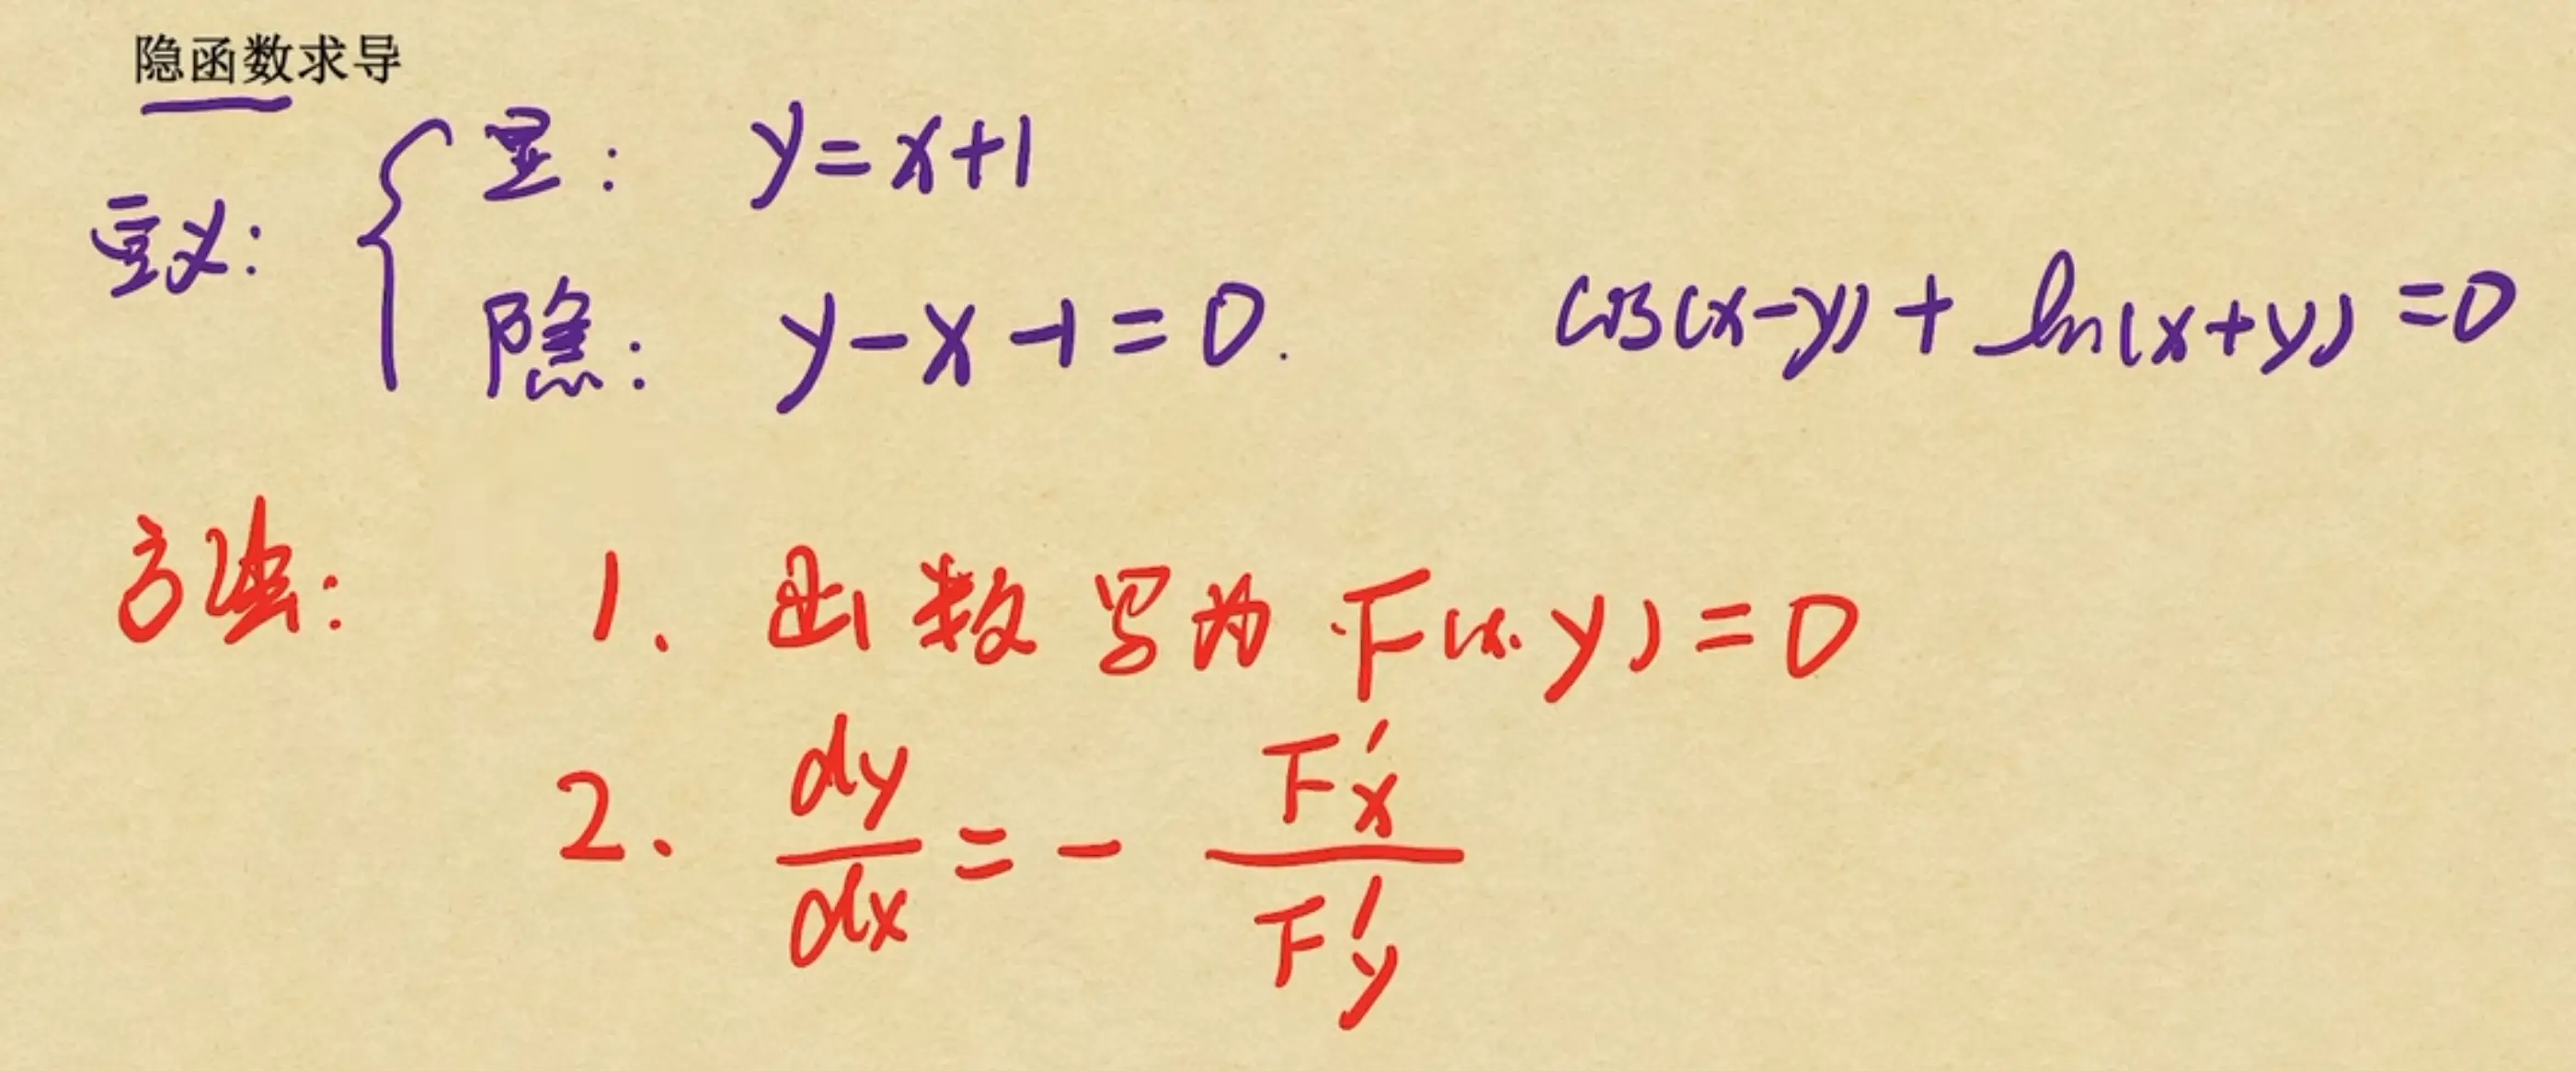 隐函数求导
定义: { 显: y=x+1
隐: y-x-1=0. cos(x-y)+ln(x+y)=0
方法: 1. 函数写为 F(x.y)=0
2. dy/dx = - F'x/F'y